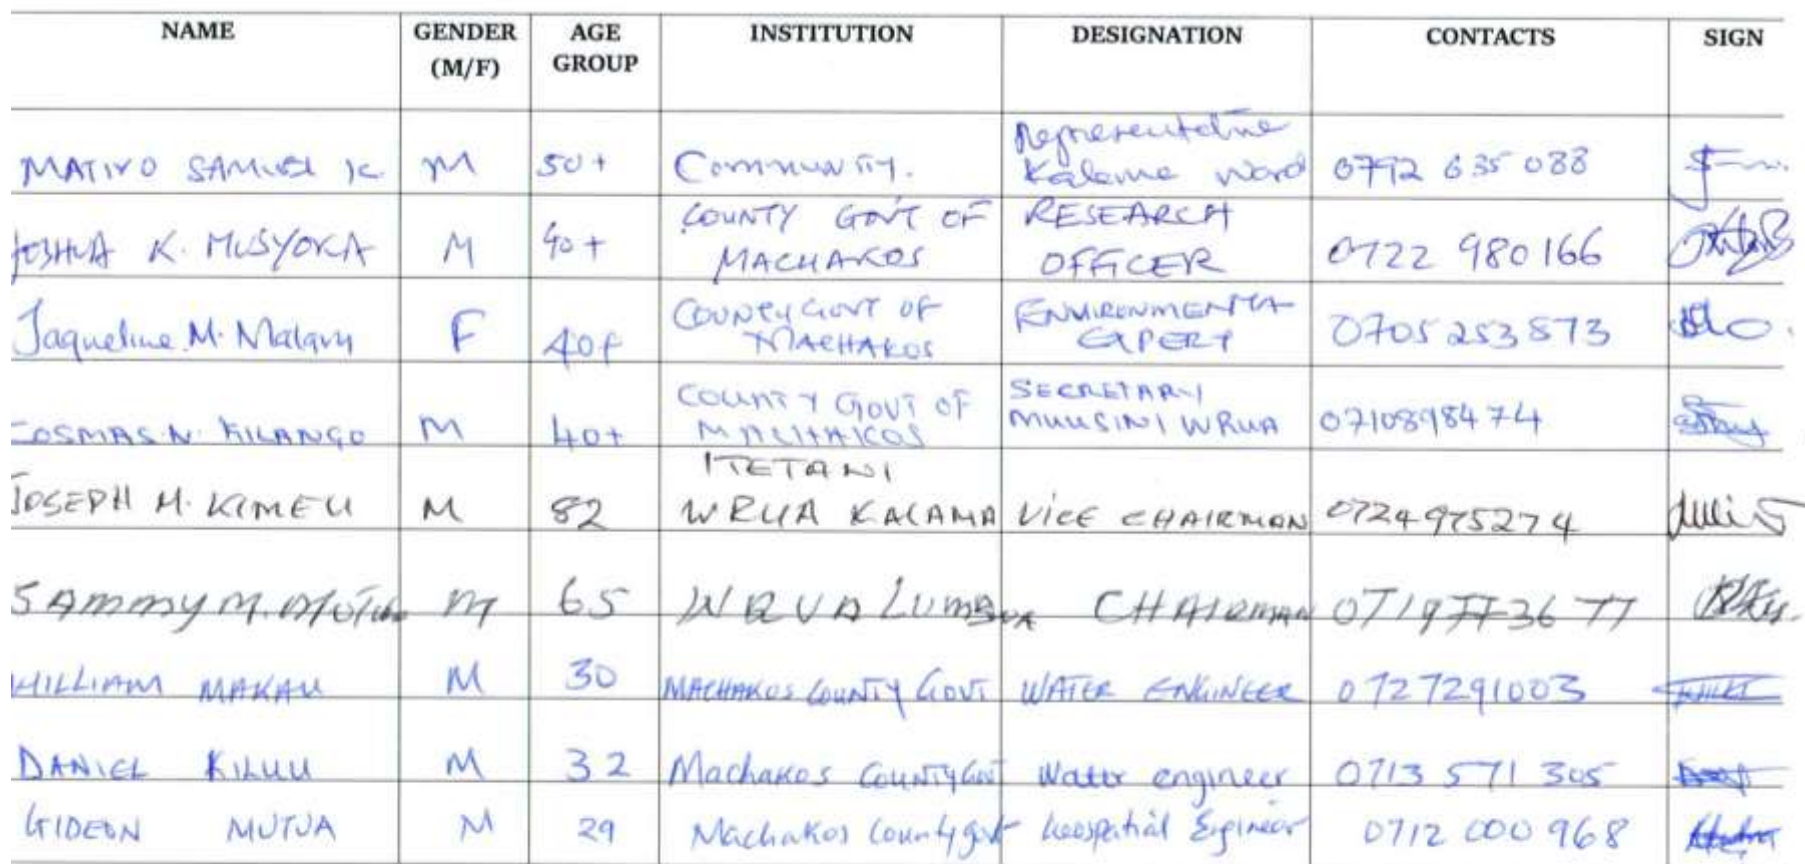 NAME GENDER (M/F) AGE GROUP INSTITUTION DESIGNATION CONTACTS SIGN
MATIVO SAMUEL K M 50+ Community. Representative Kalama Ward 0792 635 088
JOSHUA K. MUSYOKA M 40+ COUNTY GOVT OF MACHAKOS RESEARCH OFFICER 0722 980166
Jaqueline M. F 40+ COUNTY GOVT OF MACHAKOS ENVIRONMENTA EXPERT 0705 253873
COSMAS N. KILANGO M 40+ COUNTY GOVT OF MACHAKOS SECRETARY MUUSINI WRUA 0710898474
JOSEPH M. KIMEU M 82 ITETANI WRUA KALAMA VICE CHAIRMAN 0724975274
SAMMY M. M 65 WRUA CHAIRMAN 0719773677
WILLIAM MAKAU M 30 MACHAKOS COUNTY GOVT WATER ENGINEER 0727291003
DANIEL KILUU M 32 Machakos County Govt Water engineer 0713 571 305
GIDEON MUTUA M 29 Machakos County govt Geospatial Engineer 0712 000 968